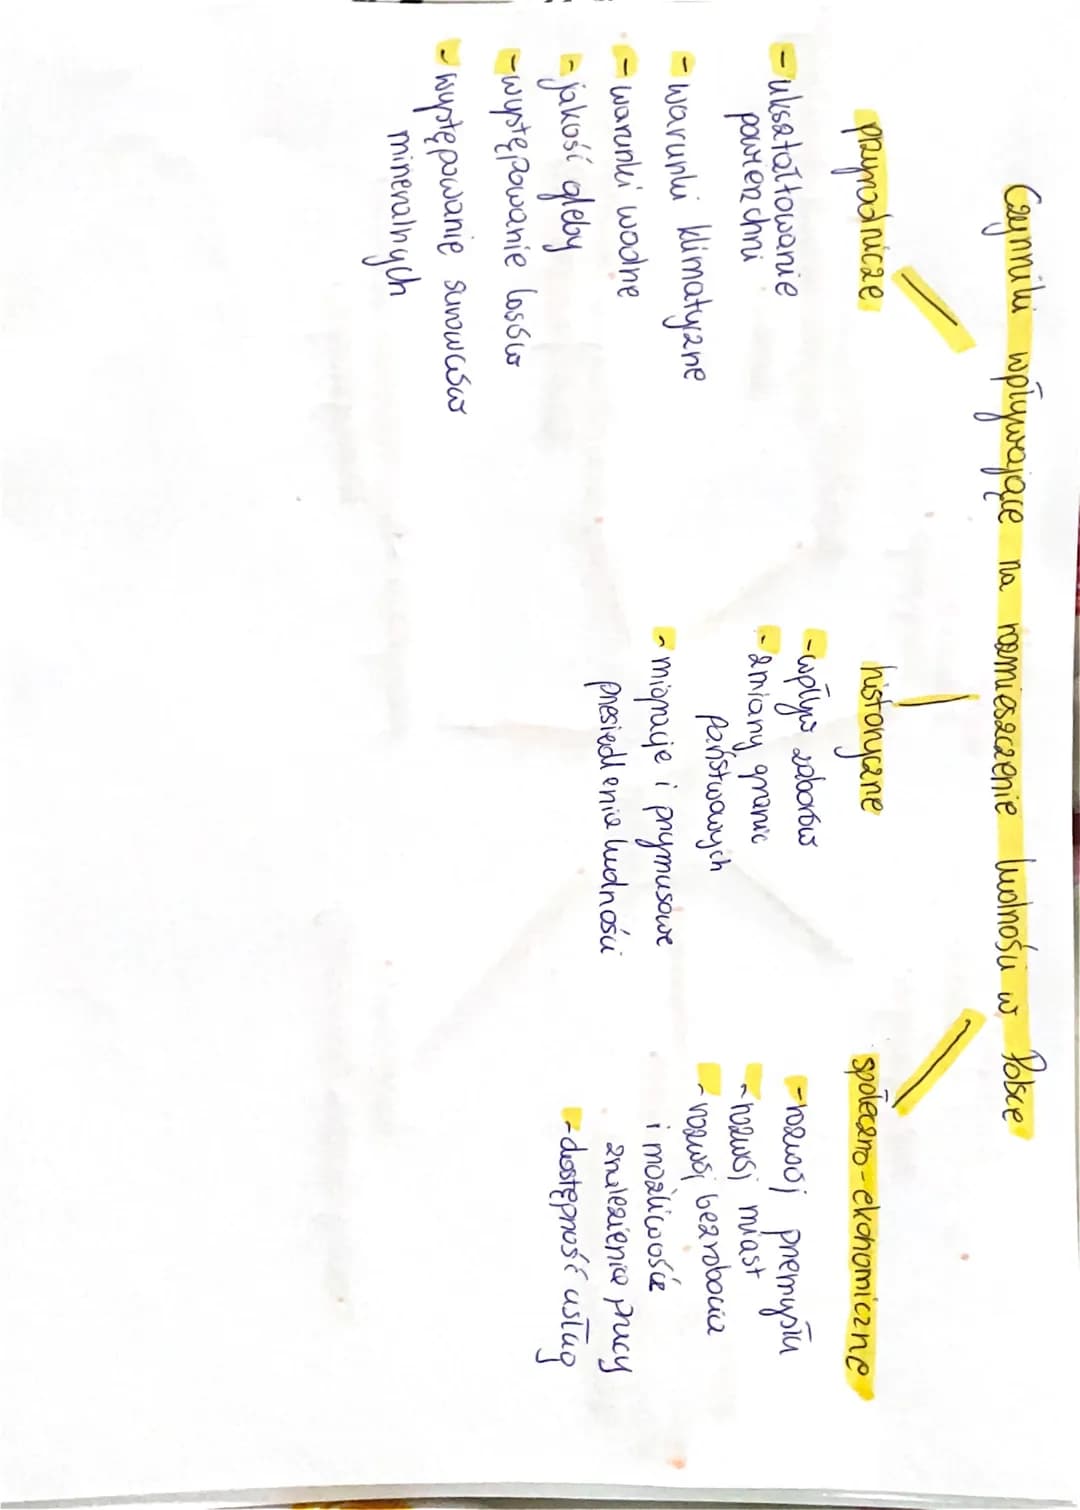 Czynniki wpływające na rozmieszczenie ludności w Polsce
przyrodnicze
- ukształtowanie
powierzchni
- warunki klimatyczne
- warunki wodne
- jakość gleby
- występowanie lasów
- występowanie surowców
mineralnych
historyczne
- wpływ zaborów
- zmiany granic
państwowych
- migracje i przymusowe
przesiedlenia ludności
społeczno-ekonomiczne
- rozwój przemysłu
- rozwój miast
- rozwój bezrobocia
i możliwości
znalezienia pracy
- dostępność usług